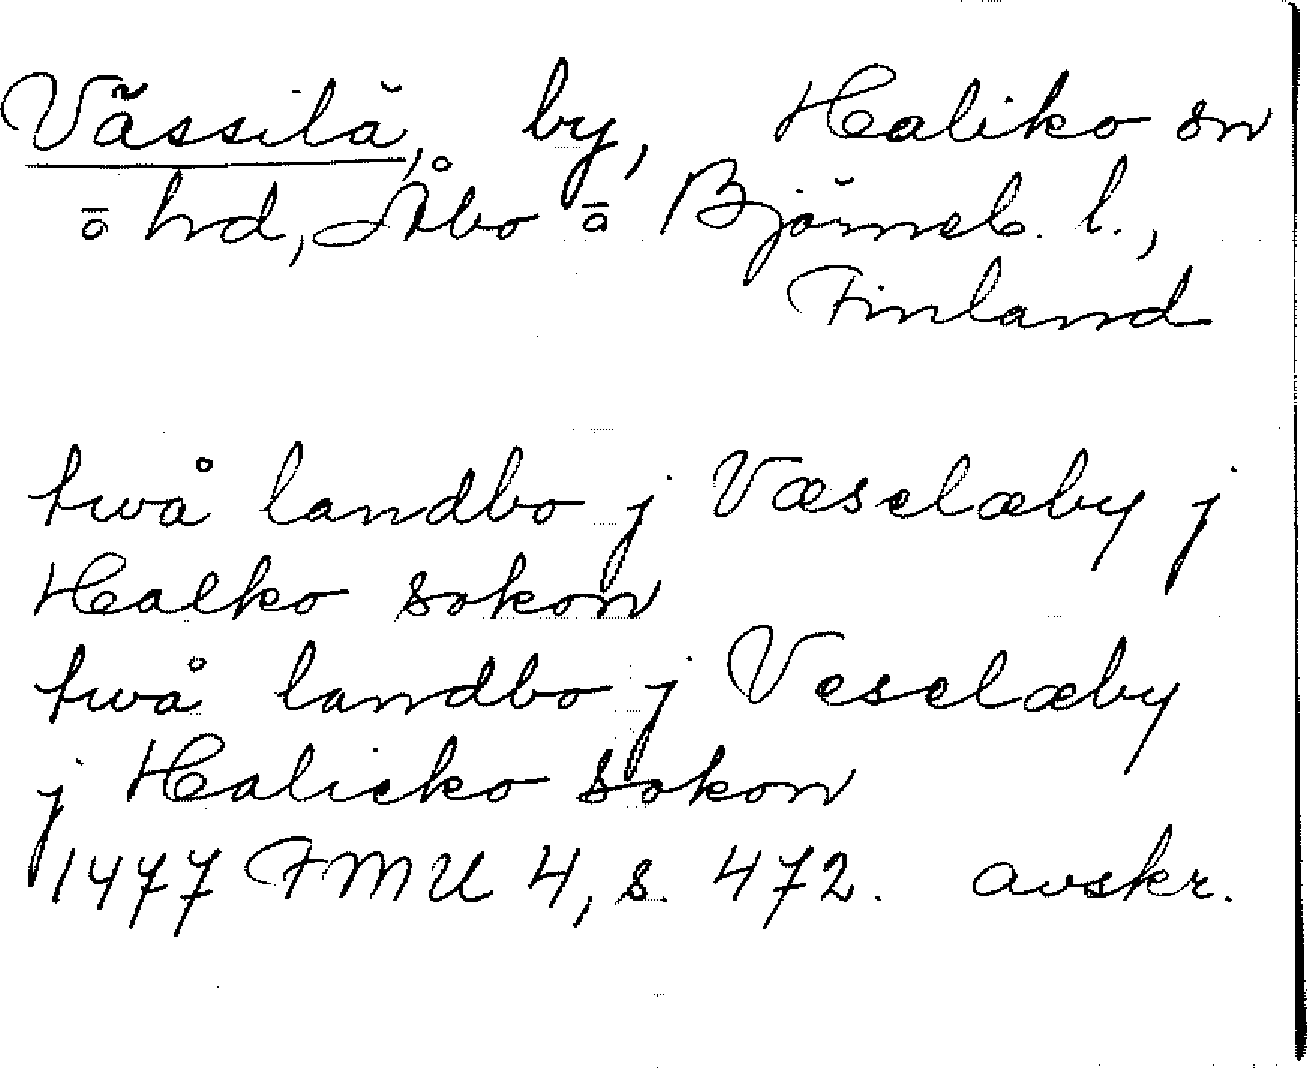 Vässilä, by, Haliko sn
o̅ hd, Åbo o̅ Björneb. l.,
Finland
twå landbo j Væselæby j
Halko sokon
twå landbo j Veselæby
j Halicko sokon
1477 FMU 4, s. 472. avskr.